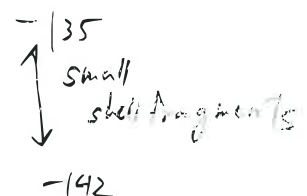 -135
small
shell fragments
-142